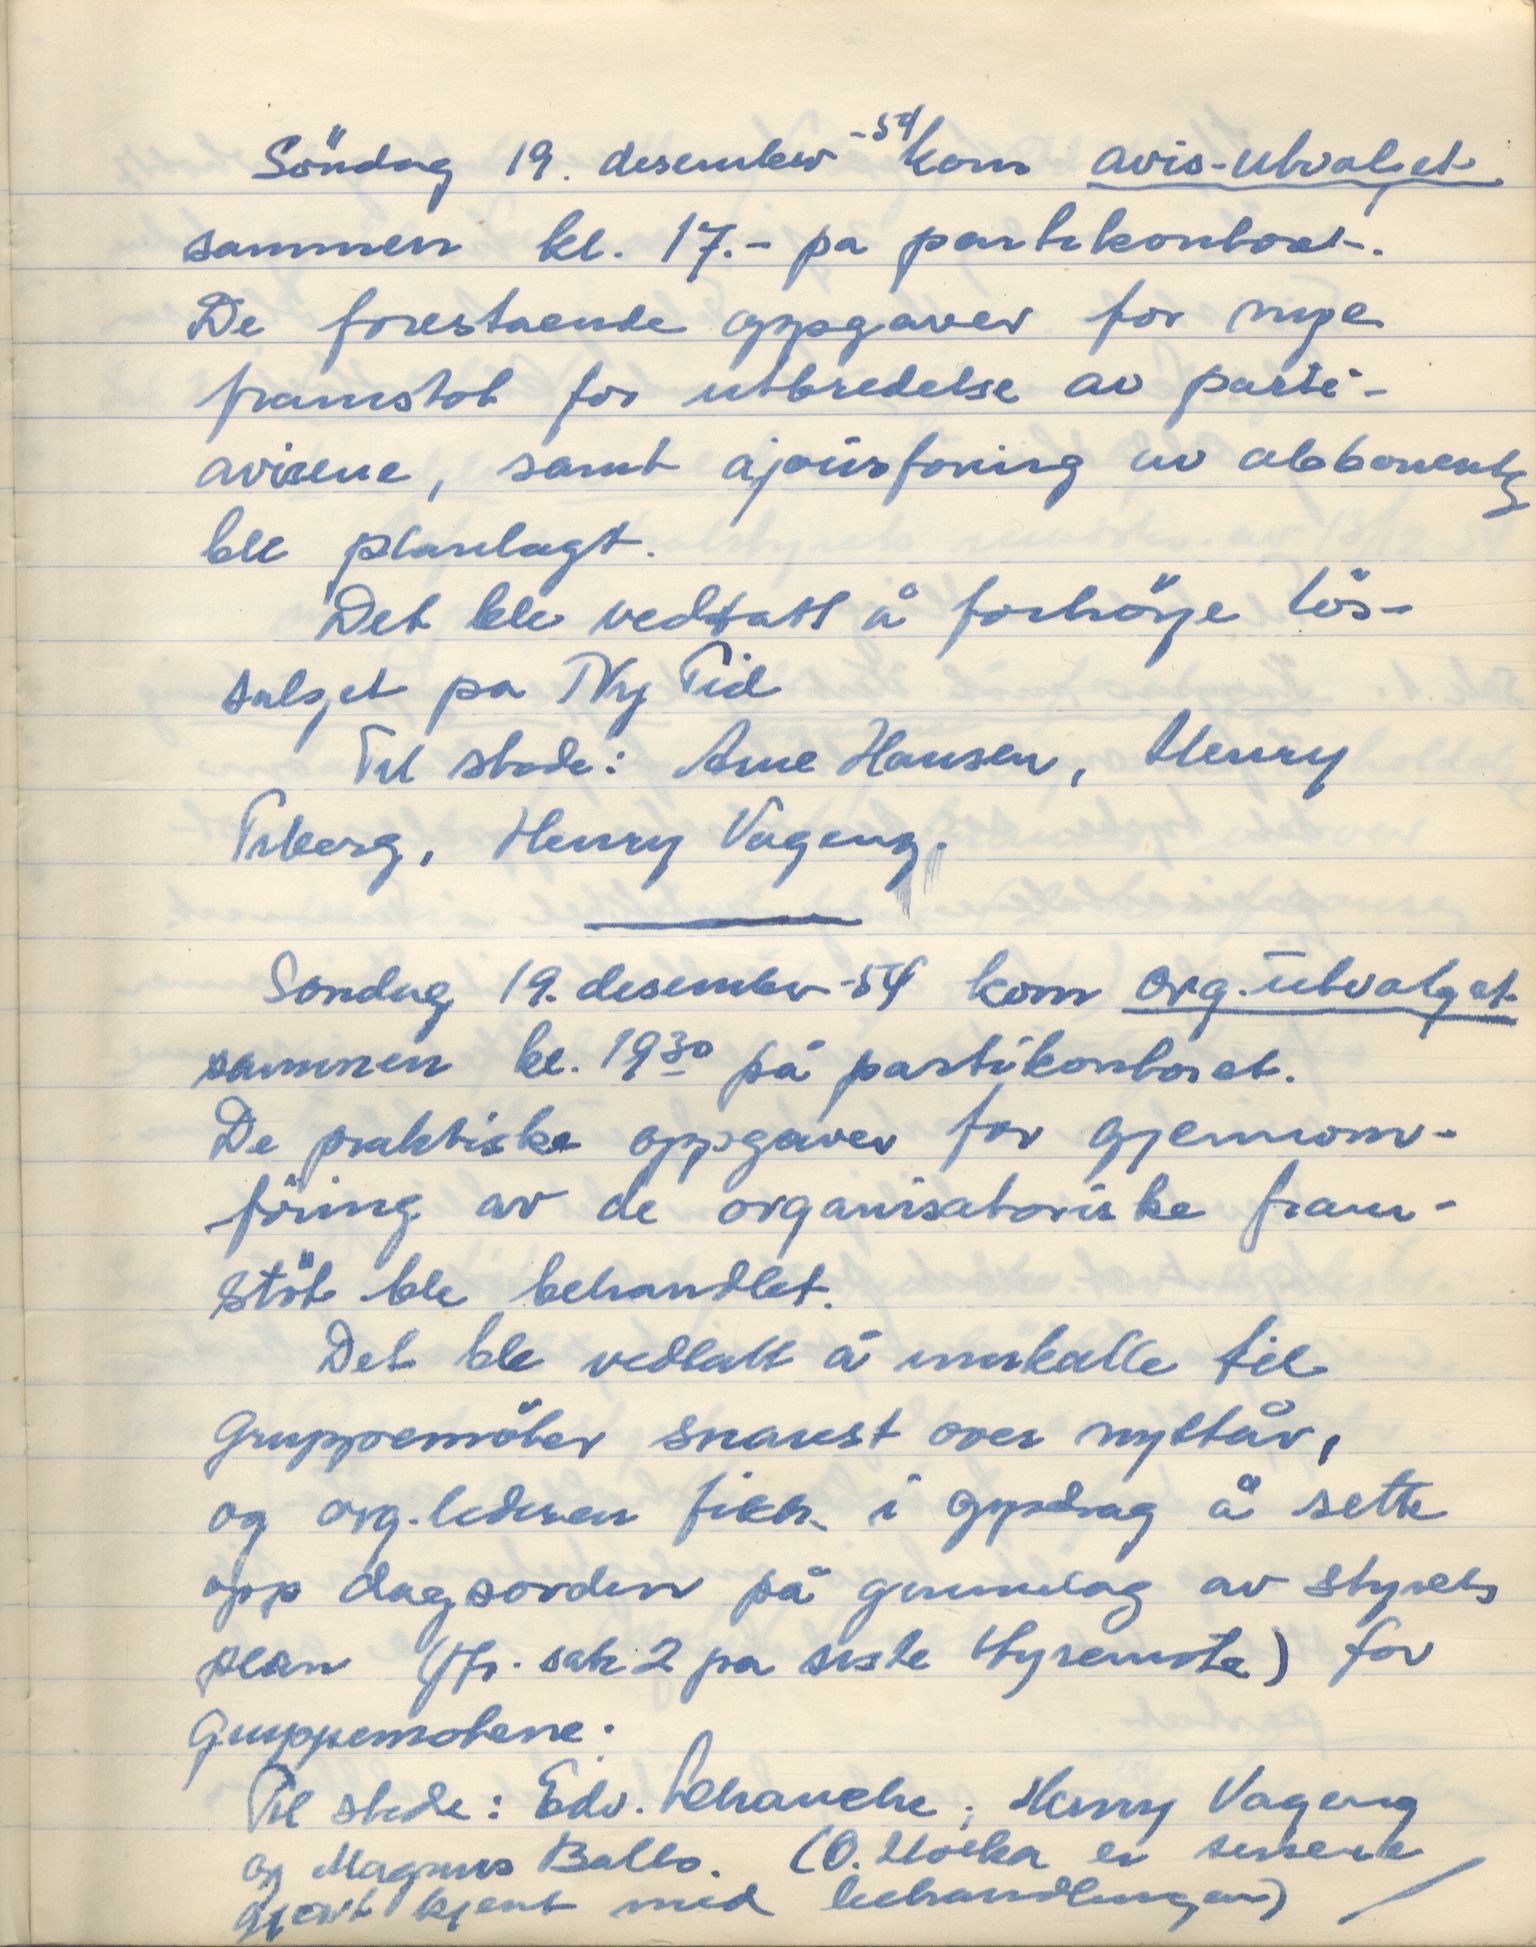 Söndag 19. desember -54 kom avis-utvalget
sammen kl. 17.- pa partikontoret.
De forestaende oppgaver for nye
framstot for utbredelse av parti-
avisene, samt ajourforing av abbonenter
ble planlagt.
Det ble vedtatt å forhöye lös-
salget pa Ny Tid
Til stede: Arne Hansen, Henry
Henry Vageng.
Sondag 19. desember -54 kom org.utvalget
sammen kl. 19 30 på partikontoret.
De praktiske oppgaver for gjennom-
föring av de organisatoriske fram-
stöt ble behandlet.
Det ble vedtatt å innkalle til
Gruppemöter snarest over nyttår,
og org.lederen fikk i oppdrag å sette
opp dagsorden på grunnlag av styrets
plan (jfr. sak 2 pa siste styremote) for
Gruppemotene.
Til stede: Edv. Henry Vageng
og Magnus Ballo. (O. er senere
gjort kjent med behandlingen)